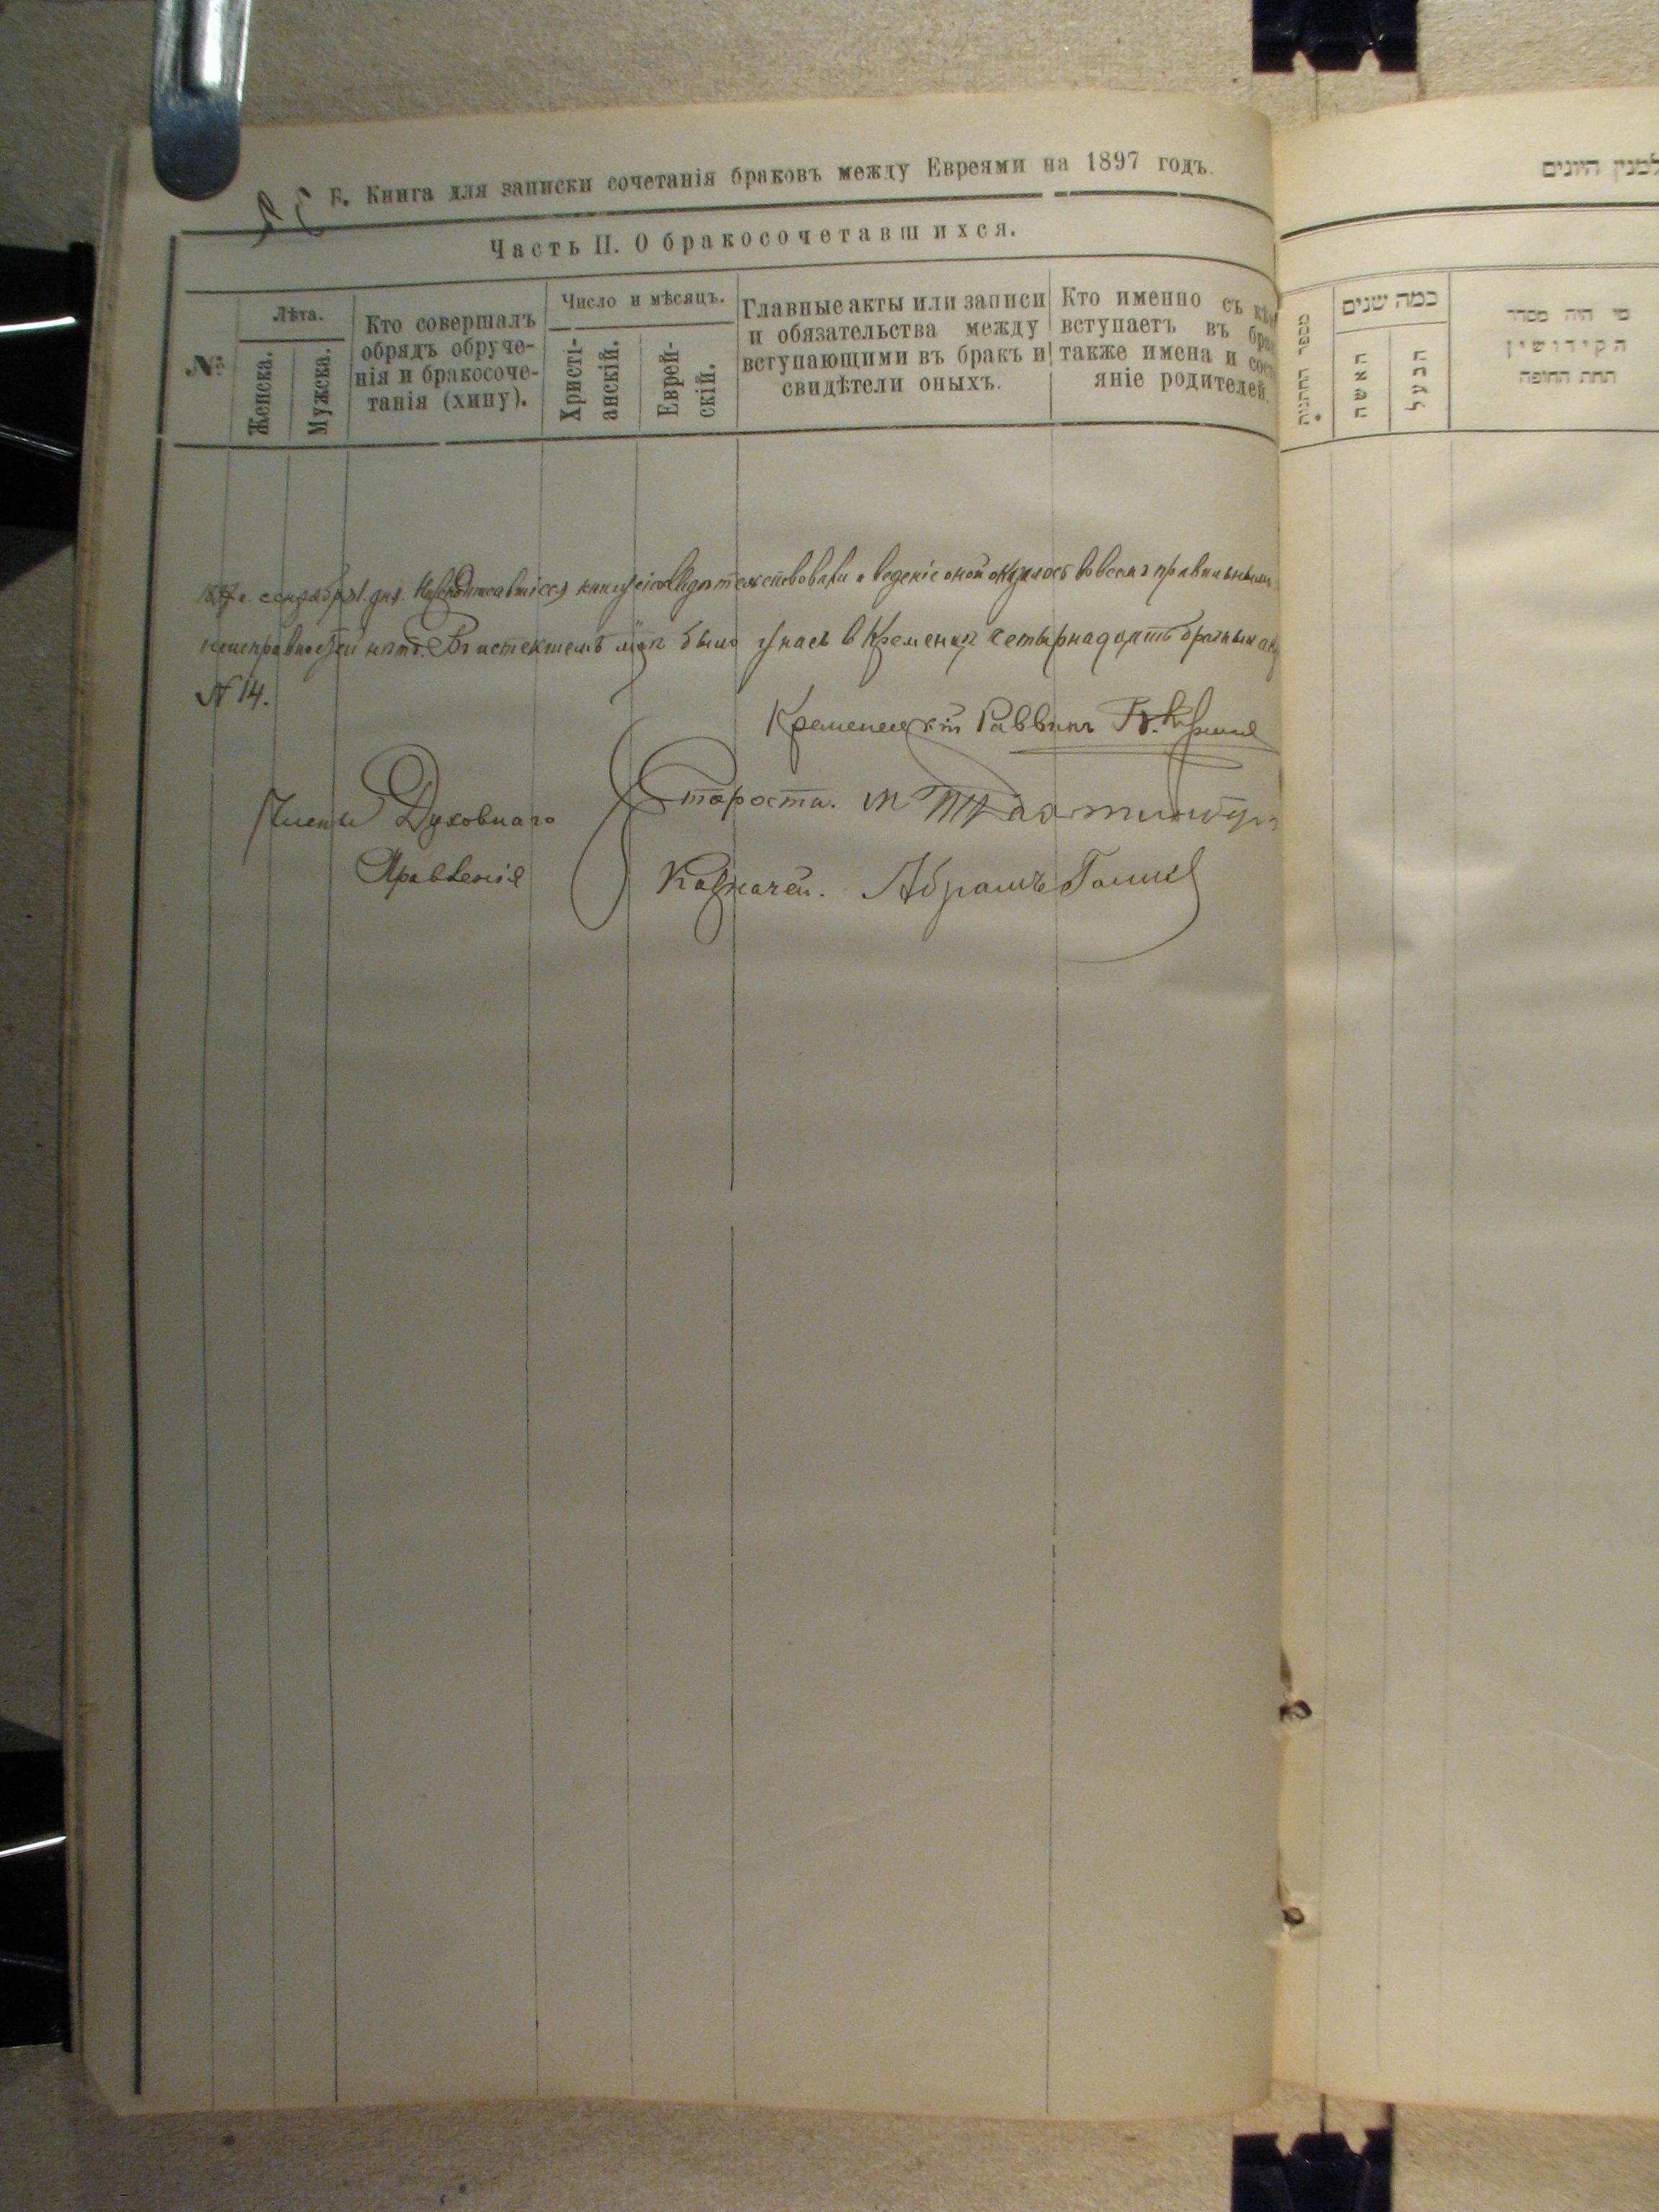 Б. Книга для записки сочетанія браковъ между Евреями на 1897 годъ.
Часть II. О бракосочетавшихся.
№
Лѣта.
Женска.
Мужска.
Кто совершалъ
обрядъ обруче-
нія и бракосоче-
танія (хипу).
Число и мѣсяцъ.
Христі-
анскій.
Еврей-
скій.
Главные акты или записи
и обязательства между
вступающими въ бракъ и
свидѣтели оныхъ.
Кто именно съ кѣмъ
вступаетъ въ брак
также имена и сост
яніе родителей.
1897 г. сентября 1. дня. книгу сію свидѣтельствовали и веденіе оной оказалось во всемъ правильнымъ
неисправностей нѣтъ. Въ истекшемъ м-цѣ было у насъ в Кременцѣ четырнадцать брачныхъ ак
№ 14.
Кременецкій Раввинъ
Члены Духовнаго
Правленія
Староста. М
Казначей. Абрамъ
למנין היונים
מספר החתנות
כמה שנים
האשה
הבעל
מי היה מסדר
הקידושין
תחת החופה